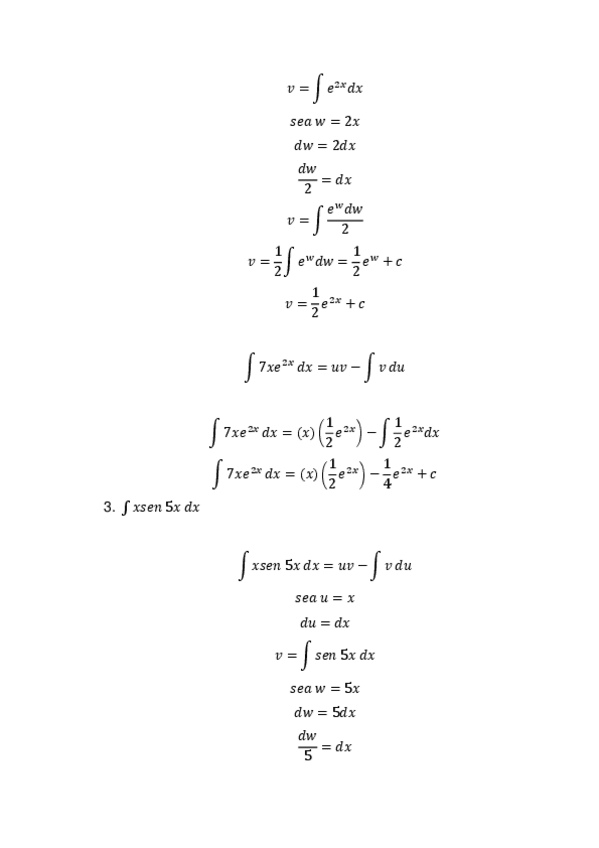 v = ∫ e²ˣdx
sea w = 2x
dw = 2dx
dw/2 = dx
v = ∫ eʷdw/2
v = 1/2 ∫ eʷdw = 1/2 eʷ + c
v = 1/2 e²ˣ + c
∫ 7xe²ˣ dx = uv − ∫ v du
∫ 7xe²ˣ dx = (x)(1/2 e²ˣ) − ∫ 1/2 e²ˣdx
∫ 7xe²ˣ dx = (x)(1/2 e²ˣ) − 1/4 e²ˣ + c
3. ∫ xsen 5x dx
∫ xsen 5x dx = uv − ∫ v du
sea u = x
du = dx
v = ∫ sen 5x dx
sea w = 5x
dw = 5dx
dw/5 = dx